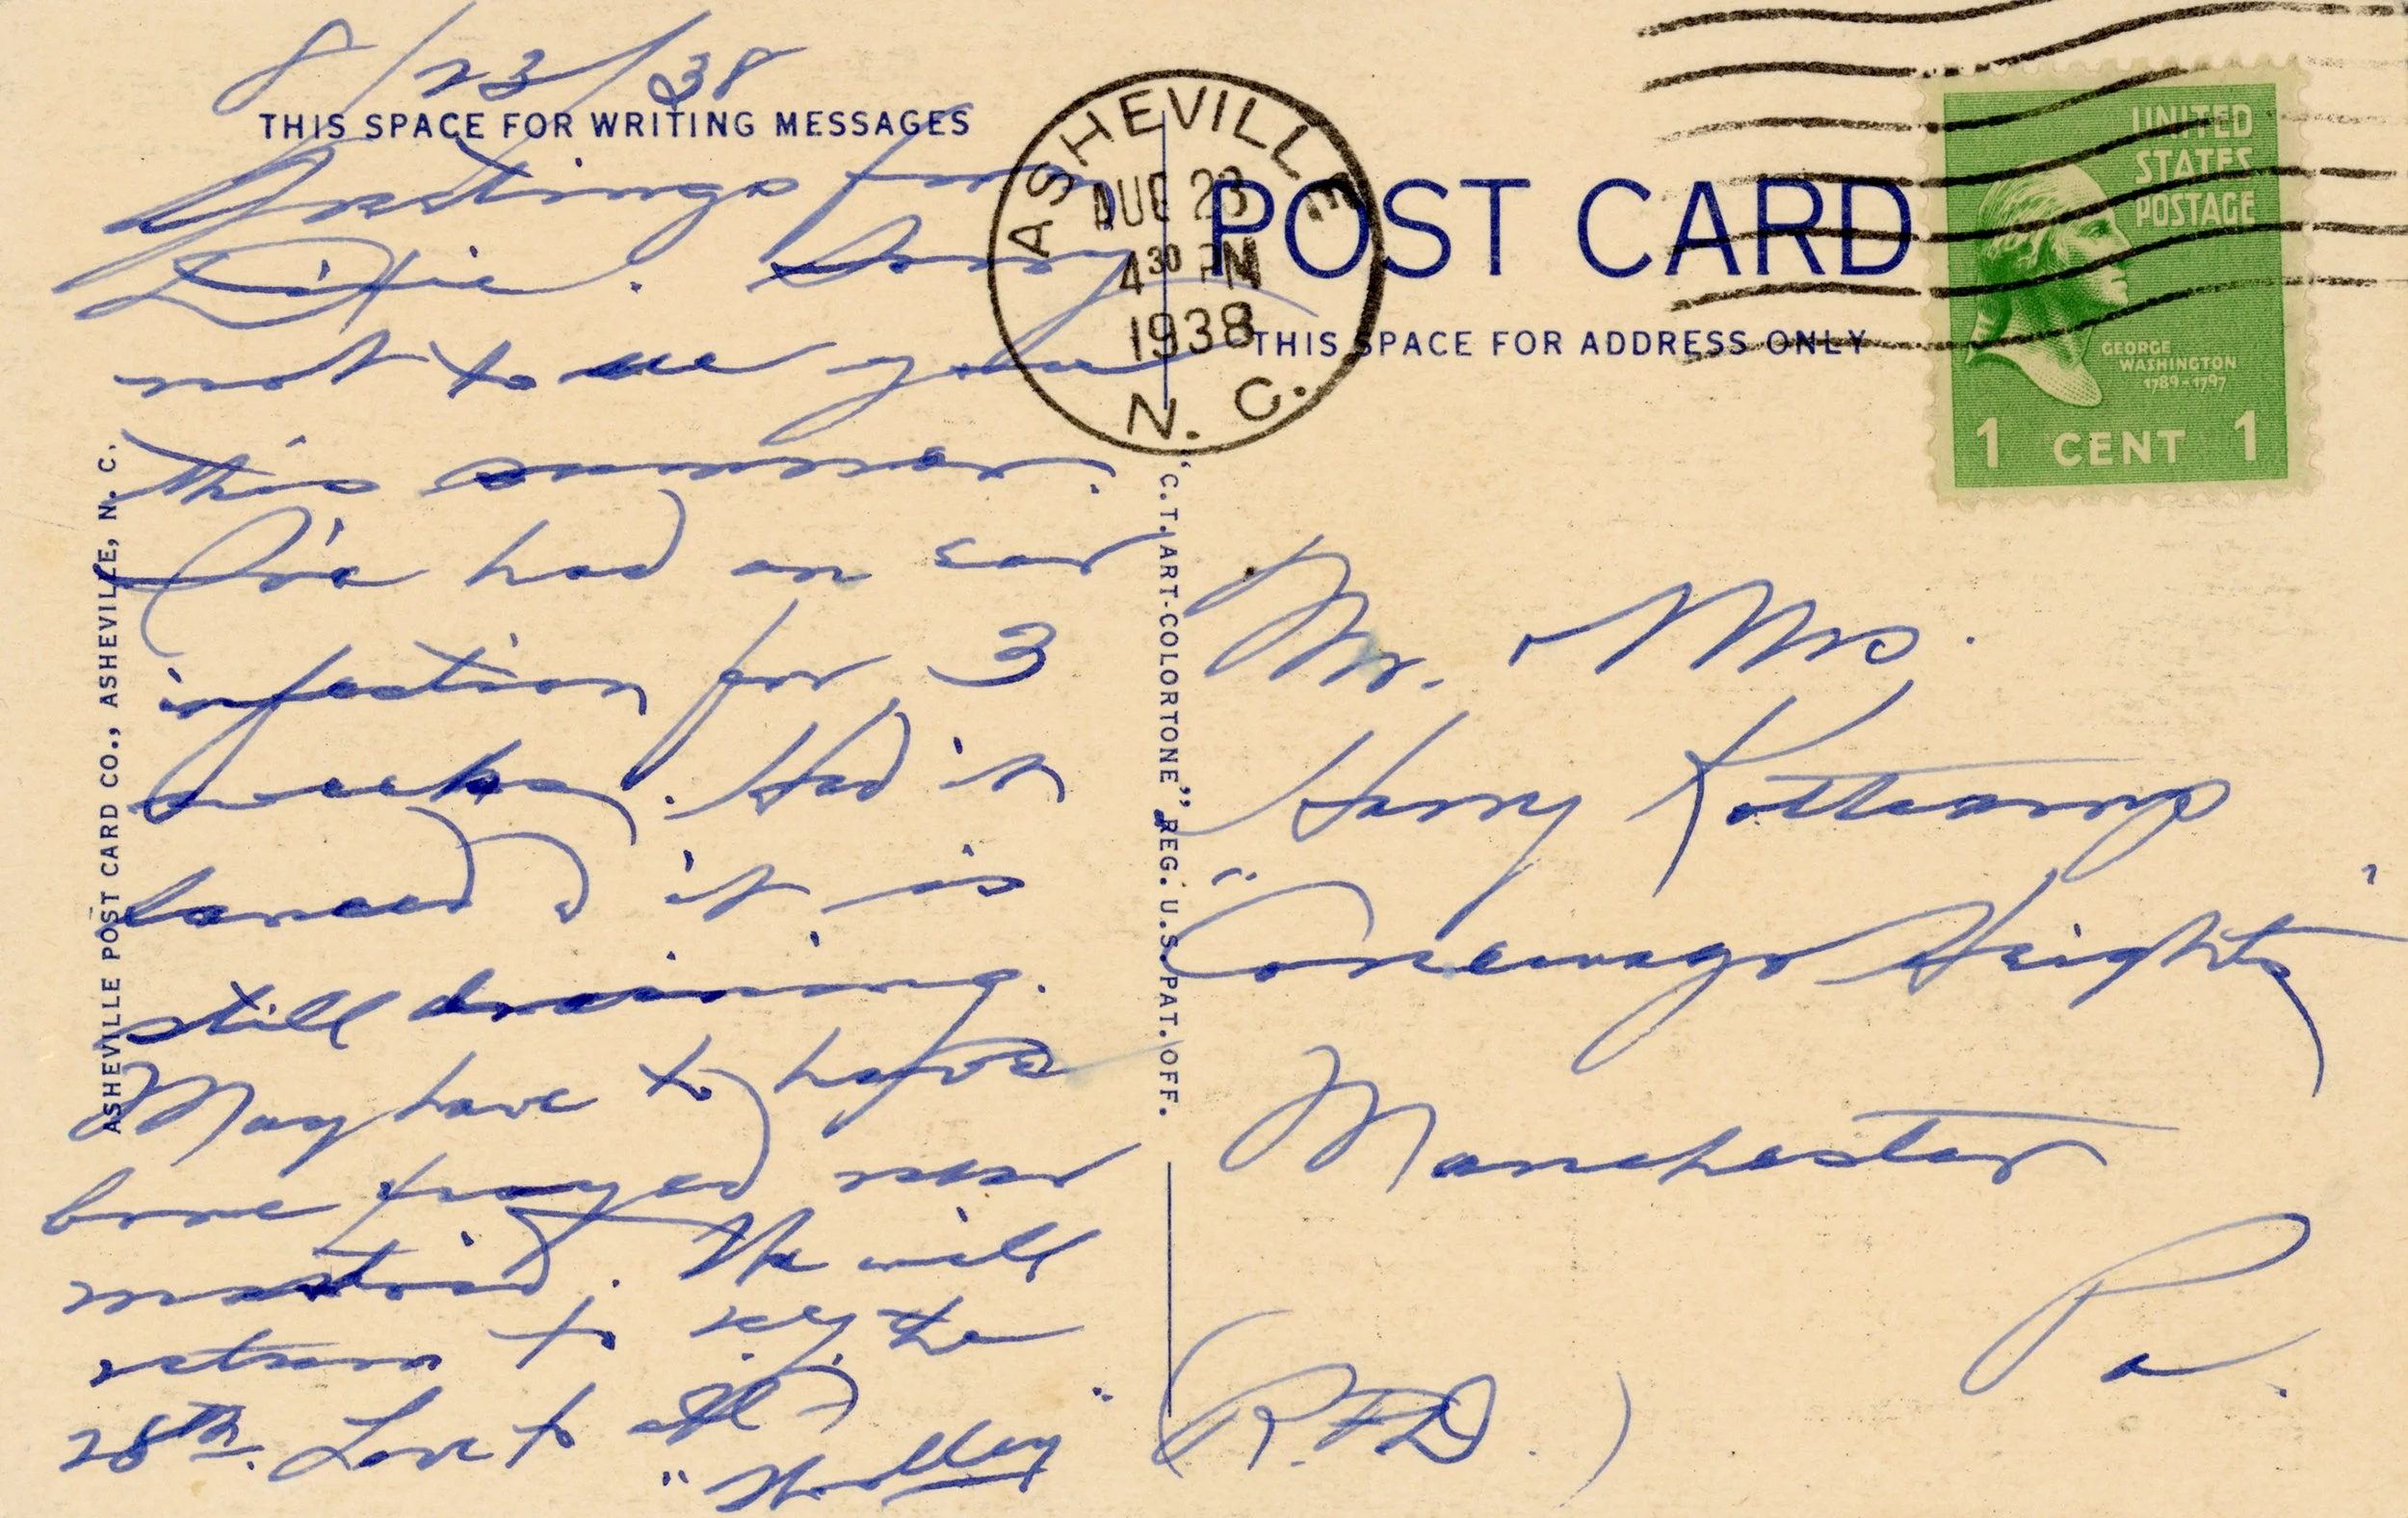 8/23/38
THIS SPACE FOR WRITING MESSAGES
Greetings from
Dixie. Sorry
not to see you
this summer.
I've had an ear
infection for 3
weeks. Had it
lanced & it is
still draining.
May have to have
bone scraped near
mastoid. We will
return to N.Y. the
28th. Love to all
ASHEVILLE POST CARD CO., ASHEVILLE, N. C.
"C. T. ART-COLORTONE" REG. U. S. PAT. OFF.
ASHEVILLE
AUG 23
4 30 PM
1938
N. C.
POST CARD
THIS SPACE FOR ADDRESS ONLY
UNITED
STATES
POSTAGE
GEORGE
WASHINGTON
1789-1797
1 CENT 1
Mr. & Mrs.
Harry Kottcamp
"Conewago Heights"
Manchester
Pa.
(R.F.D.)